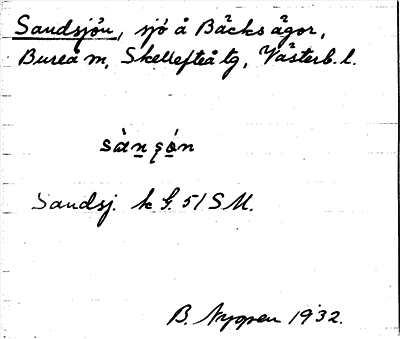 Sandsjön, sjö å Bäcks ägor,
Bureå m, Skellefteå tg, Västerb. l.
sàn̲ʂò̲n
Sandsj. k G. 51 S M.
B. Nygren 1932.